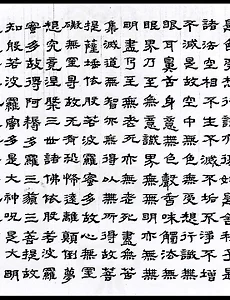 諸法空相不生不滅不垢不淨不增
不減是故空中無色無受想行識無
眼耳鼻舌身意無色聲香味觸法無
眼界乃至無意識界無無明亦無無
明盡乃至無老死亦無老死盡無苦
集滅道無智亦無得以無所得故菩
提薩埵依般若波羅蜜多故心無罣
礙無罣礙故無有恐怖遠離顛倒夢
想究竟涅槃三世諸佛依般若波羅
蜜多故得阿耨多羅三藐三菩提故
知般若波羅蜜多是大神咒是大明